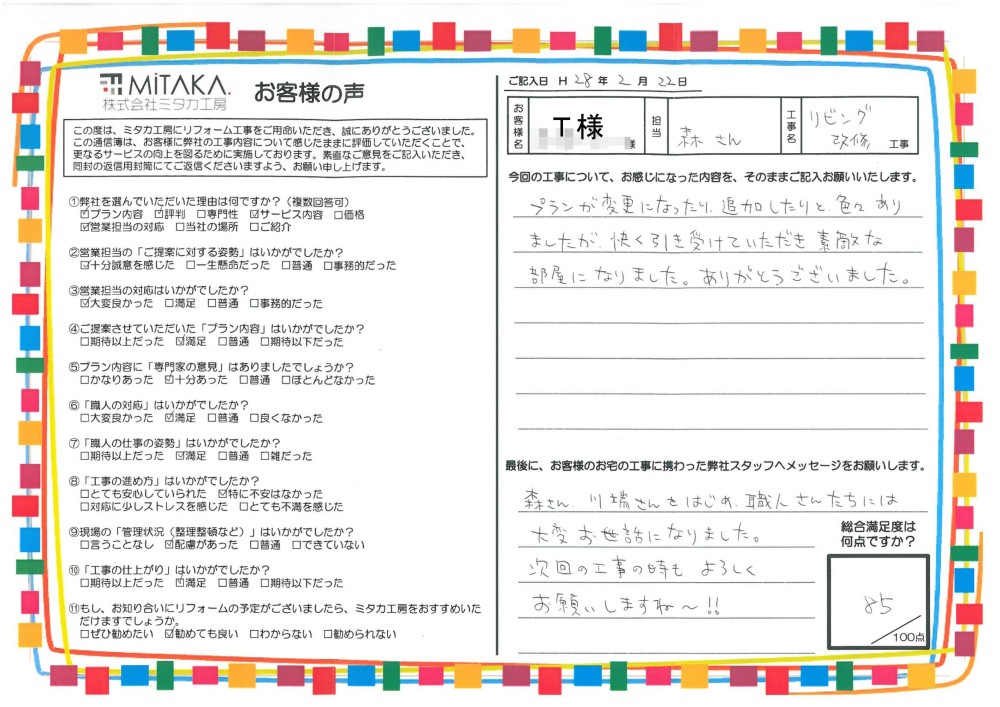 MiTAKA.
株式会社ミタカ工房
お客様の声
この度は、ミタカ工房にリフォーム工事をご用命いただき、誠にありがとうございました。
この通信簿は、お客様に弊社の工事内容について感じたままに評価していただくことで、
更なるサービスの向上を図るために実施しております。素直なご意見をご記入いただき、
同封の返信用封筒にてご返信くださいますよう、お願い申し上げます。
①弊社を選んでいただいた理由は何ですか？（複数回答可）
☑プラン内容 ☑評判 □専門性 ☑サービス内容 □価格
☑営業担当の対応 □当社の場所 □ご紹介
②営業担当の「ご提案に対する姿勢」はいかがでしたか？
☑十分誠意を感じた □一生懸命だった □普通 □事務的だった
③営業担当の対応はいかがでしたか？
☑大変良かった □満足 □普通 □事務的だった
④ご提案させていただいた「プラン内容」はいかがでしたか？
□期待以上だった ☑満足 □普通 □期待以下だった
⑤プラン内容に「専門家の意見」はありましたでしょうか？
□かなりあった ☑十分あった □普通 □ほとんどなかった
⑥「職人の対応」はいかがでしたか？
□大変良かった ☑満足 □普通 □良くなかった
⑦「職人の仕事の姿勢」はいかがでしたか？
□期待以上だった ☑満足 □普通 □雑だった
⑧「工事の進め方」はいかがでしたか？
□とても安心していられた ☑特に不安はなかった
□対応に少しストレスを感じた □とても不満を感じた
⑨現場の「管理状況（整理整頓など）」はいかがでしたか？
□言うことなし ☑配慮があった □普通 □できていない
⑩「工事の仕上がり」はいかがでしたか？
□期待以上だった ☑満足 □普通 □期待以下だった
⑪もし、お知り合いにリフォームの予定がございましたら、ミタカ工房をおすすめいた
だけますでしょうか。
□ぜひ勧めたい ☑勧めても良い □わからない □勧められない
ご記入日 H 28 年 2 月 22 日
お客様名 T様 様 担当 森 さん 工事名 リビング
改修 工事
今回の工事について、お感じになった内容を、そのままご記入お願いいたします。
プランが変更になったり、追加したりと、色々あり
ましたが、快く引き受けていただき素敵な
部屋になりました。ありがとうございました。
最後に、お客様のお宅の工事に携わった弊社スタッフへメッセージをお願いします。
森さん、川端さんをはじめ、職人さんたちには
大変お世話になりました。
次回の工事の時も よろしく
お願いしますね～!!
総合満足度は
何点ですか？
85
／100点